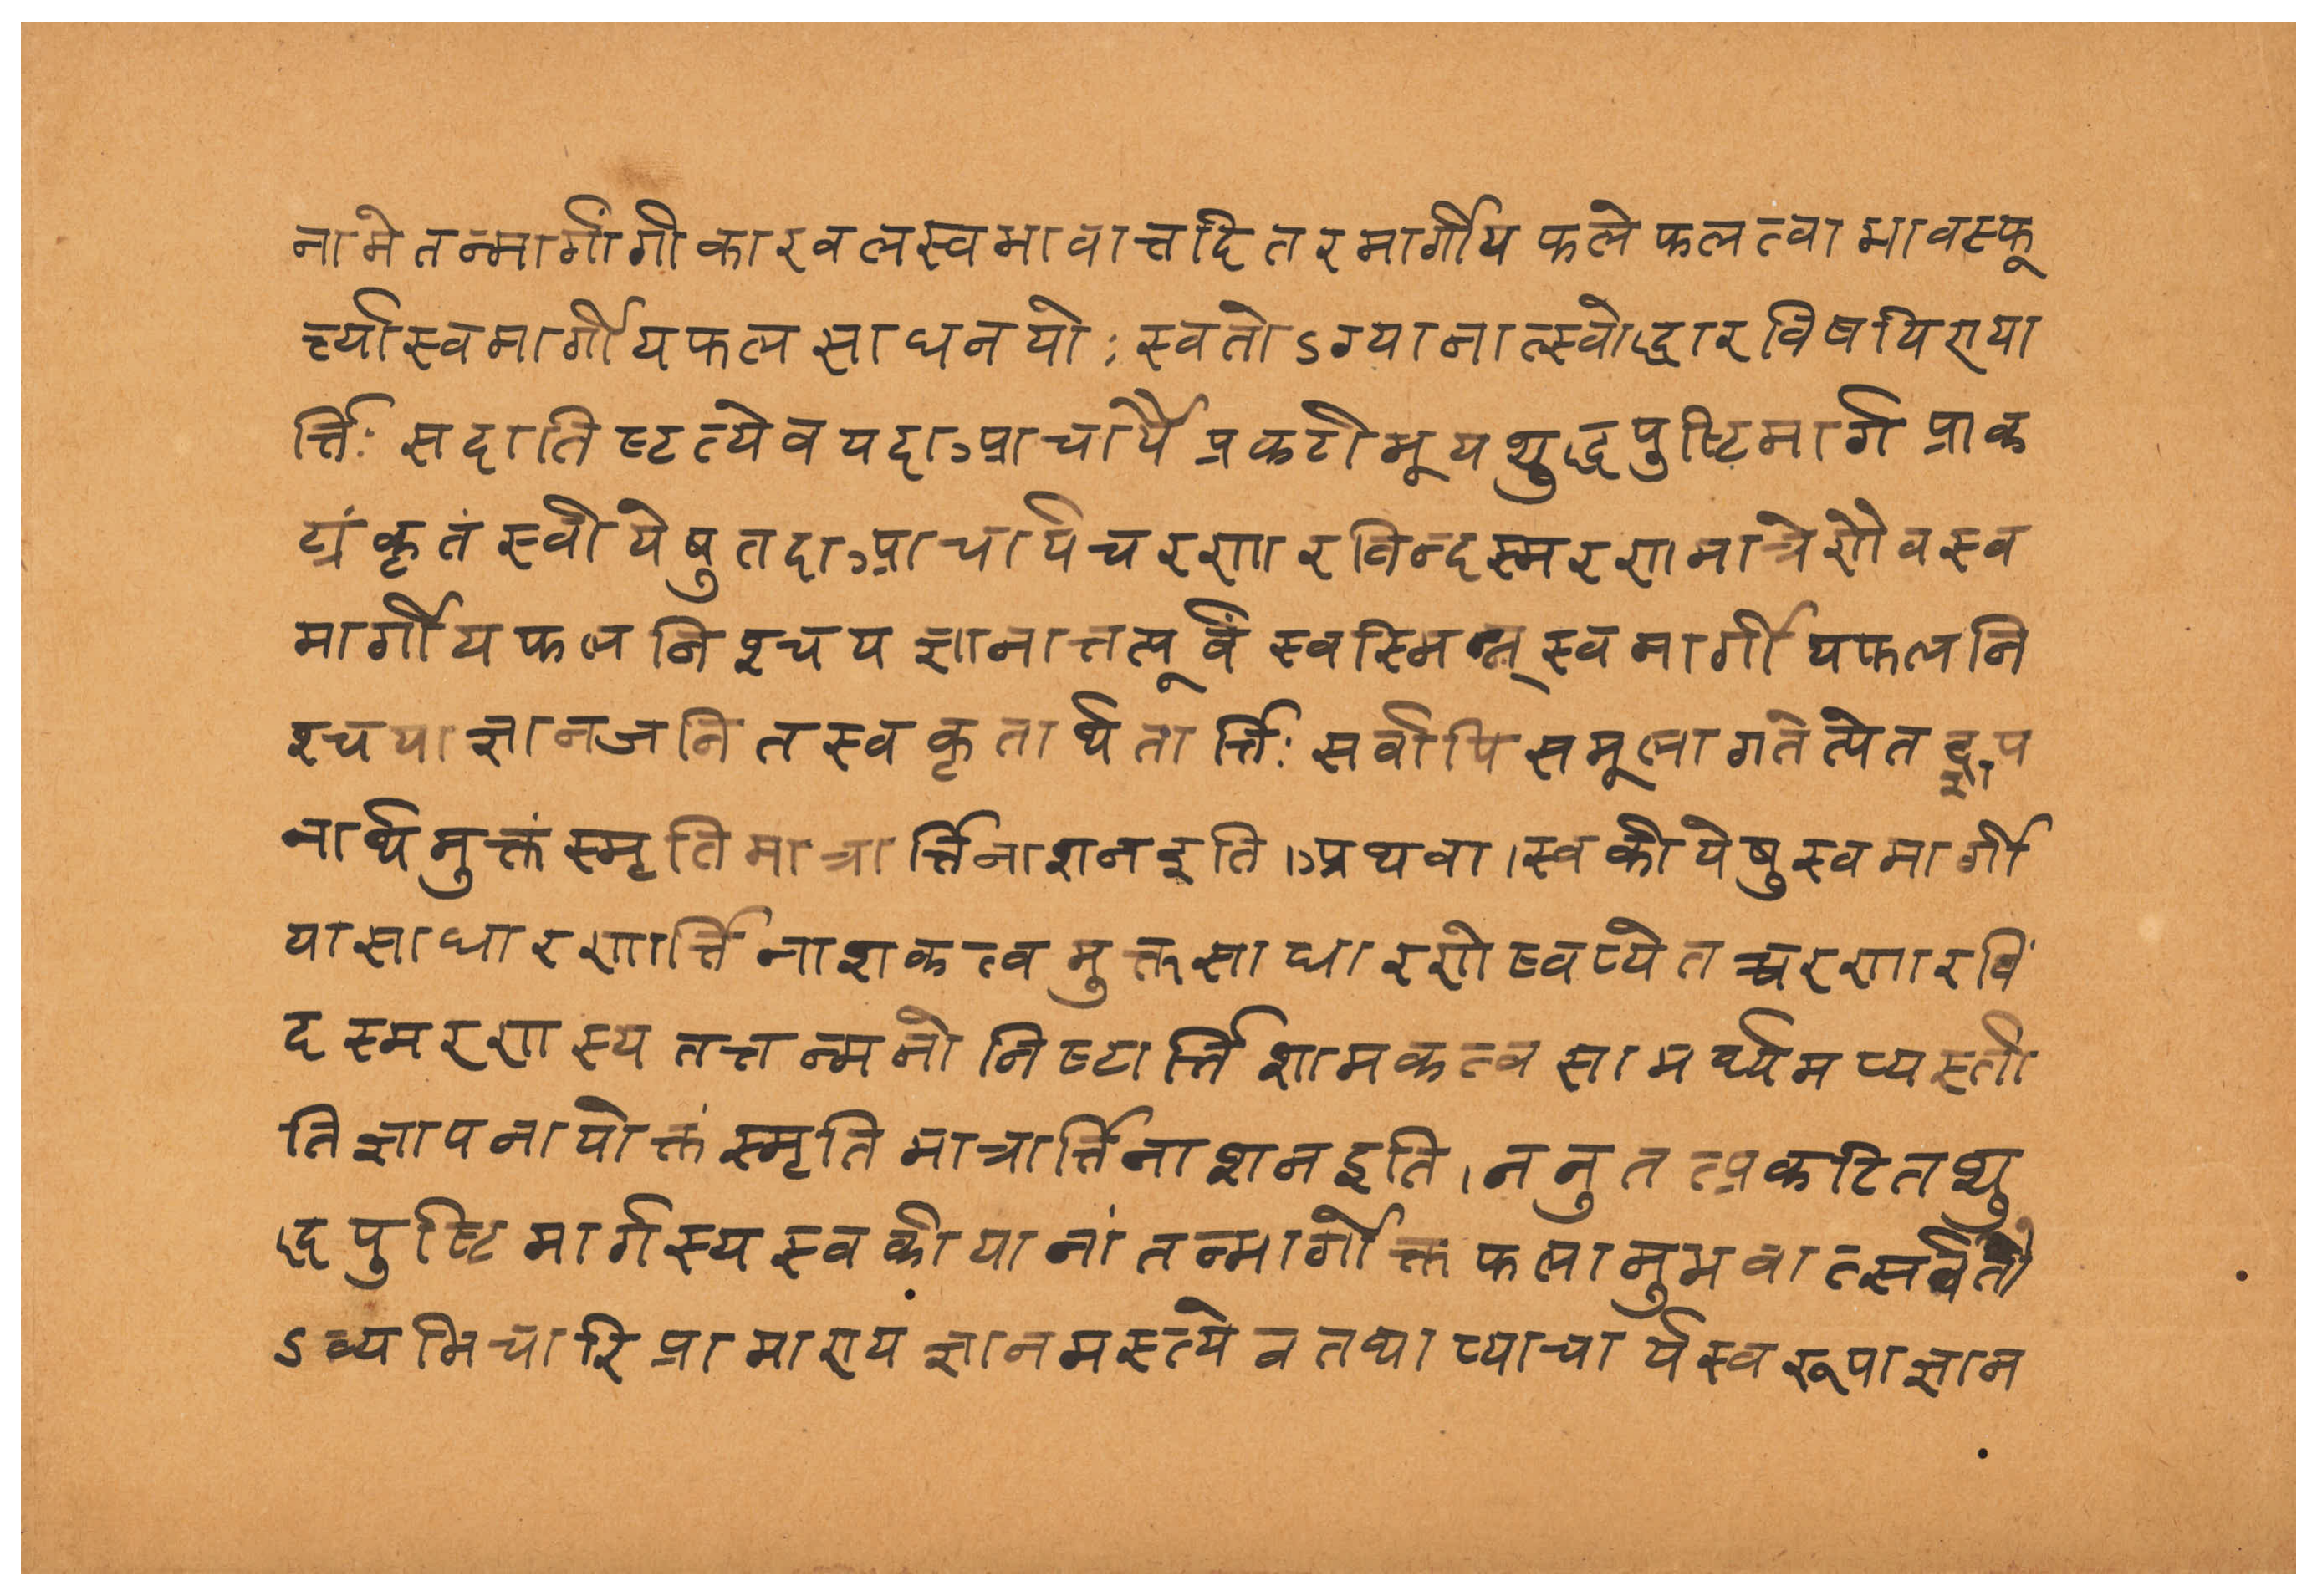 नामेतन्मार्गांगीकारवलस्वभावात्तदितरमार्गीयफलेफलत्वाभावस्फू
र्त्त्यास्वमार्गीयफलसाधनयोः स्वतोऽग्यानात्स्वोद्धारविषयिण्या
र्त्तिः सदातिष्टत्येवयदाआचार्यैप्रकटीभूयशुद्धपुष्टिमार्गप्राक
ट्यंकृतंस्वीयेषुतदाआचार्यचरणारविन्दस्मरणमात्रेणैवस्व
मार्गीयफलनिश्चयज्ञानात्तत्पूर्वंस्वस्मिन्स्वमार्गीयफलनि
श्चयाज्ञानजनितस्वकृतार्थतार्त्तिः सर्वापिसमूलागतेत्येतद्ज्ञाप
नार्थमुक्तंस्मृतिमात्रार्त्तिनाशनइति।अथवा।स्वकीयेषुस्वमार्गी
यासाधारणार्त्तिनाशकत्वमुक्तसाधारणेष्वप्येतच्चरणारविं
दस्मरणस्यतत्तन्मनोनिष्टार्त्तिशामकत्वसामर्थ्यमप्यस्ती
तिज्ञापनायोक्तंस्मृतिमात्रार्त्तिनाशनइति।ननुतत्प्रकटितशु
द्धपुष्टिमार्गस्यस्वकीयानांतन्मार्गोक्तफलानुभवात्सर्वतो
ऽव्यभिचारिप्रामाण्यज्ञानमस्त्येवतथाप्याचार्यस्वरूपाज्ञान